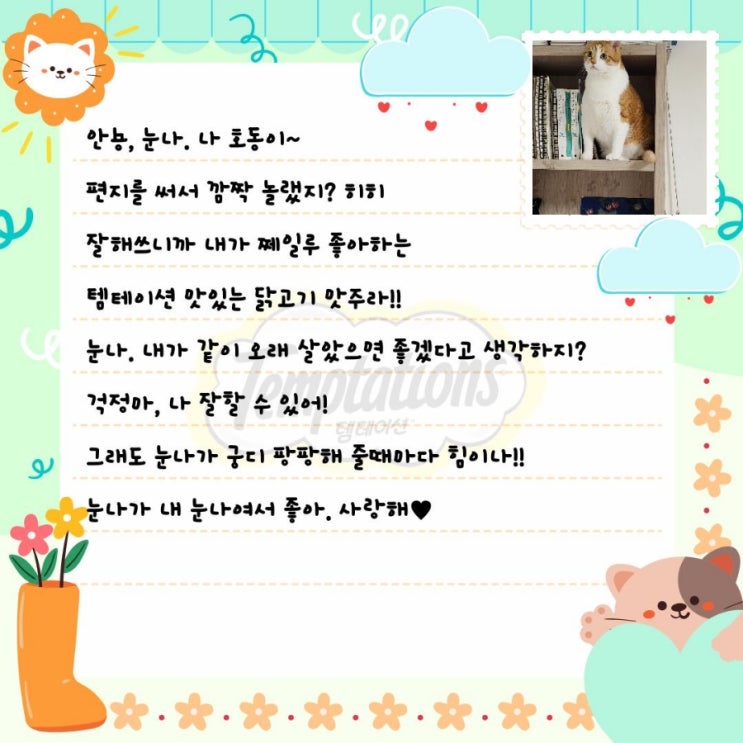 안뇽, 눈나. 나 호동이~
편지를 써서 깜짝 놀랬지? 히히
잘해쓰니까 내가 쩨일루 좋아하는
템테이션 맛있는 닭고기 맛주라!!
눈나. 내가 같이 오래 살았으면 좋겠다고 생각하지?
Temptations
템테이션
걱정마, 나 잘할 수 있어!
그래도 눈나가 궁디 팡팡해 줄때마다 힘이나!!
눈나가 내 눈나여서 좋아. 사랑해♥